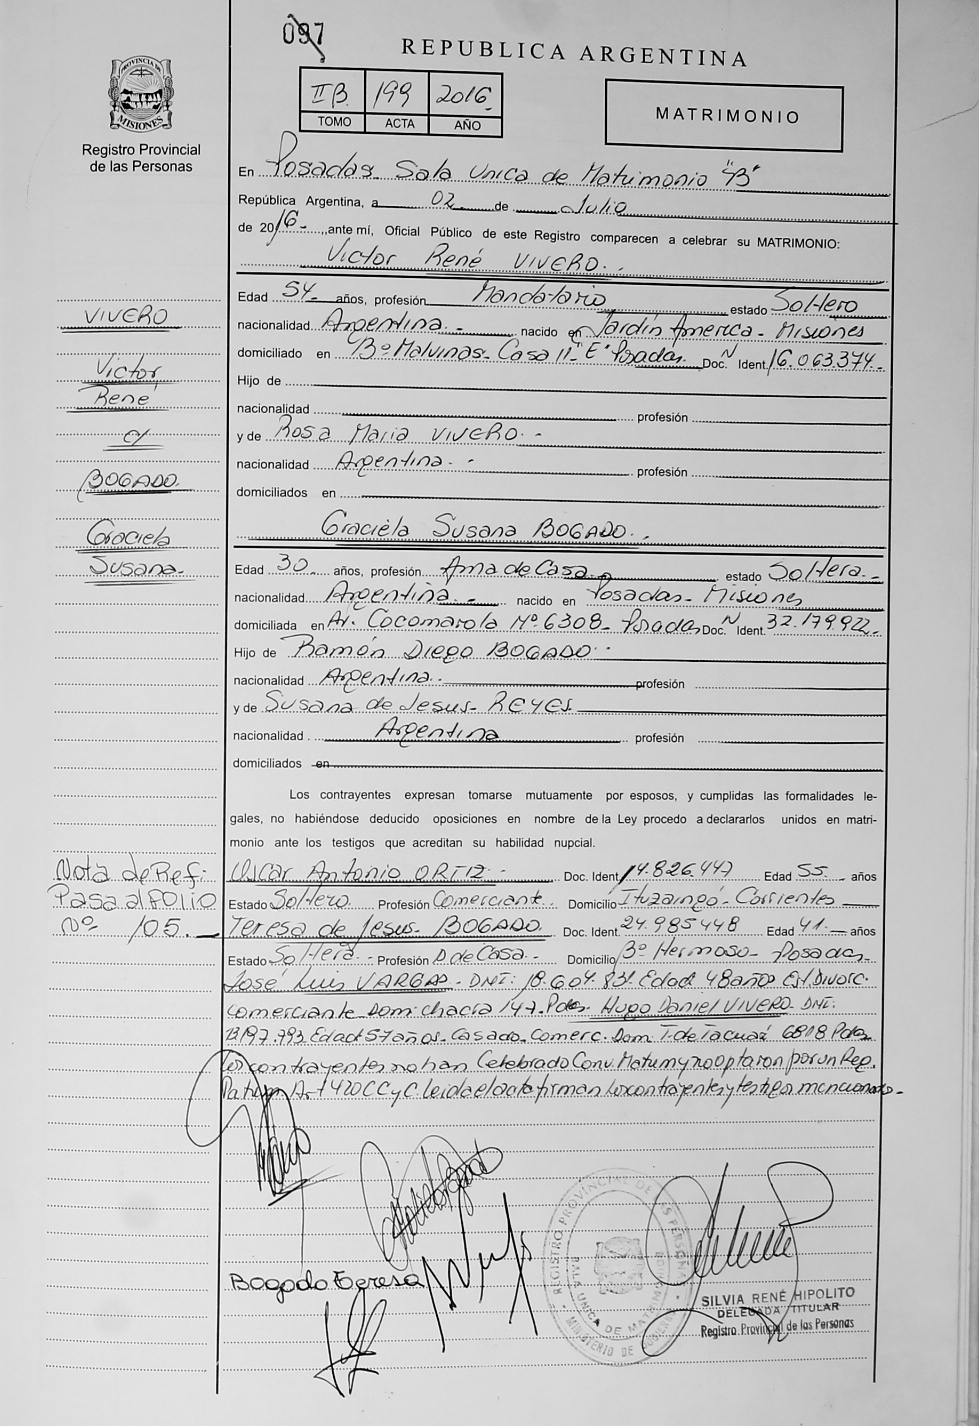 097
REPUBLICA ARGENTINA
PROVINCIA DE
MISIONES
Registro Provincial
de las Personas
IIB 199 2016
TOMO ACTA AÑO
MATRIMONIO
En Posadas Sala Unica de Matrimonio "B"
República Argentina, a 02 de Julio
de 2016 ,ante mí, Oficial Público de este Registro comparecen a celebrar su MATRIMONIO:
Victor René VIVERO
Edad 54 años, profesión Mandatario estado Soltero
nacionalidad Argentina.- nacido en Jardín America - Misiones
domiciliado en Bº Malvinas- Casa 11-"E" Posadas Doc. N Ident. 16.063.374.-
Hijo de
nacionalidad profesión
y de Rosa Maria VIVERO.-
nacionalidad Argentina.- profesión
domiciliados en
Graciela Susana BOGADO.
Edad 30 años, profesión Ama de Casa estado Soltera.-
nacionalidad Argentina.- nacido en Posadas- Misiones
domiciliada en Av. Cocomarola Nº 6308- Posadas Doc. N Ident. 32.179.922.-
Hijo de Ramón Diego BOGADO.-
nacionalidad Argentina.- profesión
y de Susana de Jesus- REYES
nacionalidad Argentina profesión
domiciliados en
Los contrayentes expresan tomarse mutuamente por esposos, y cumplidas las formalidades le-
gales, no habiéndose deducido oposiciones en nombre de la Ley procedo a declararlos unidos en matri-
monio ante los testigos que acreditan su habilidad nupcial.
Oscar Antonio ORTIZ.- Doc. Ident. 14.826.447 Edad 55 años
Estado Soltero Profesión Comerciante. Domicilio Ituzaingó- Corrientes
Teresa de Jesus- BOGADO. Doc. Ident. 24.985448 Edad 41.- años
Estado Soltera.- Profesión A.de Casa.- Domicilio Bº Hermoso- Posadas
José Luis VARGAS- DNI: 18.604.831 Edad 48 años Est. Divorc.
comerciante Dom: chacra 147- Pdas. Hugo Daniel VIVERO. DNI:
13197.793 Edad 57 años. Casado. Comerc. Dom T. de Tacuarí 6818 Pdas
Los contrayentes no han Celebrado Conv. Matrim y no optaron por un Reg.
Patrim Art 420 CC y C. leida el acta firman los contrayentes y testigos mencionados-
VIVERO
Victor
René
c/
BOGADO.
Graciela
Susana-
Nota de Ref:
Pasa al FOLIO
Nº 105.-
Bogado Teresa
REGISTRO PROVINCIAL DE LAS PERSONAS
SALA UNICA DE MATRIMONIO
MINISTERIO DE GOBIERNO
SILVIA RENÉ HIPOLITO
DELEGADA TITULAR
Registro Provincial de las Personas